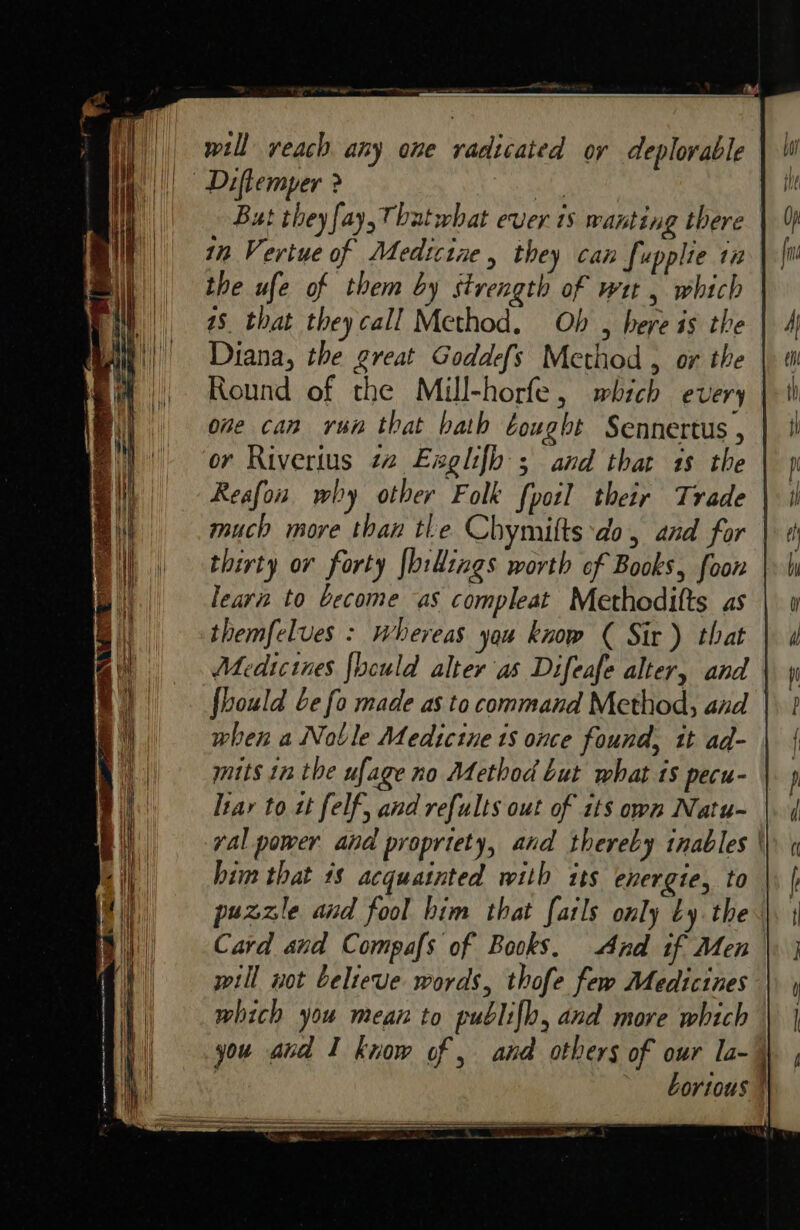 will reach any one radicated or deplorable
Diſtemper ?
But they ſay, That what ever is wanting there
in Vertue of Medicine, they can ſupplie in
the uſe of them by ſtrength of wit, which
is that they call Method. Oh, here is the
Diana, the great Goddeſs Method, or the
Round of the Mill-horſe, which every
one can run that hath bought Sennertus,
or Riverius in Engliſh; and that is the
Reaſon why other Folk ſpoil their Trade
much more than the Chymiſts do, and for
thirty or forty ſhillings worth of Books, ſoon
learn to become as compleat Methodiſts as
themſelves : Whereas you know ( Sir ) that
Medicines ſhould alter as Diſeaſe alter, and
ſhould be ſo made as to command Method, and
when a Noble Medicine is once found, it ad-
mits in the uſage no Method but what is pecu-
liar to it ſelf, and reſults out of its own Natu-
ral power and propriety, and thereby inables
him that is acquainted with its energie, to
puzzle and fool him that ſails only by the
Card and Compaſs of Books. And if Men
will not believe words, thoſe few Medicines
which you mean to publiſh, and more which
you and I know of, and others of our la-
borious